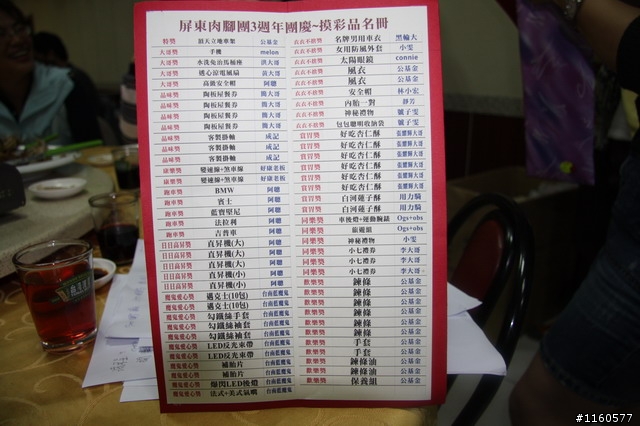 屏東肉腳團3週年團慶~摸彩品名冊
特獎 頂天立地車架 公基金
大哥獎 手機 melon
大哥獎 水洗免治馬桶座 洪大哥
大哥獎 遙心涼電風扇 黃大哥
大哥獎 高級安全帽 阿聰
品味獎 陶板屋餐券 簡大哥
品味獎 陶板屋餐券 簡大哥
品味獎 陶板屋餐券 簡大哥
品味獎 陶板屋餐券 簡大哥
品味獎 客製掛軸 成記
品味獎 客製掛軸 成記
品味獎 客製掛軸 成記
康樂獎 變速線+煞車線 好康老板
康樂獎 變速線+煞車線 好康老板
跑車獎 BMW 阿聰
跑車獎 賓士 阿聰
跑車獎 藍寶堅尼 阿聰
跑車獎 法拉利 阿聰
跑車獎 吉普車 阿聰
日日高昇獎 直昇機(大) 阿聰
日日高昇獎 直昇機(大) 阿聰
日日高昇獎 直昇機(大) 阿聰
日日高昇獎 直昇機(小) 阿聰
日日高昇獎 直昇機(小) 阿聰
魔鬼愛心獎 邁克士(10包) 台南藍魔鬼
魔鬼愛心獎 邁克士(10包) 台南藍魔鬼
魔鬼愛心獎 勾纖絲手套 台南藍魔鬼
魔鬼愛心獎 勾纖絲袖套 台南藍魔鬼
魔鬼愛心獎 勾纖絲袖套 台南藍魔鬼
魔鬼愛心獎 LED反光束帶 台南藍魔鬼
魔鬼愛心獎 LED反光束帶 台南藍魔鬼
魔鬼愛心獎 補胎片 台南藍魔鬼
魔鬼愛心獎 補胎片 台南藍魔鬼
魔鬼愛心獎 爆閃LED後燈 台南藍魔鬼
魔鬼愛心獎 法式+美式氣嘴 台南藍魔鬼
衣衣不捨獎 名牌男用車衣 黑輪大
衣衣不捨獎 女用防風外套 小雯
衣衣不捨獎 太陽眼鏡 connie
衣衣不捨獎 風衣 公基金
衣衣不捨獎 風衣 公基金
衣衣不捨獎 安全帽 林小宏
衣衣不捨獎 內胎一對 靜芳
衣衣不捨獎 神秘禮物 號子雯
衣衣不捨獎 包包聰明收納袋 號子雯
賞胃獎 好吃杏仁酥 張耀輝大哥
賞胃獎 好吃杏仁酥 張耀輝大哥
賞胃獎 好吃杏仁酥 張耀輝大哥
賞胃獎 好吃杏仁酥 張耀輝大哥
賞胃獎 好吃杏仁酥 張耀輝大哥
賞胃獎 白河蓮子酥 用力騎
賞胃獎 白河蓮子酥 用力騎
同樂獎 車後燈+運動腕錶 Ogs+obs
同樂獎 旅遊組 Ogs+obs
同樂獎 神秘禮物 小雯
同樂獎 小七禮券 李大哥
同樂獎 小七禮券 李大哥
同樂獎 小七禮券 李大哥
歡樂獎 鍊條 公基金
歡樂獎 鍊條 公基金
歡樂獎 鍊條 公基金
歡樂獎 鍊條 公基金
歡樂獎 鍊條 公基金
歡樂獎 鍊條 公基金
歡樂獎 手套 公基金
歡樂獎 手套 公基金
歡樂獎 鍊條油 公基金
歡樂獎 鍊條油 公基金
歡樂獎 保養組 公基金
#1160577